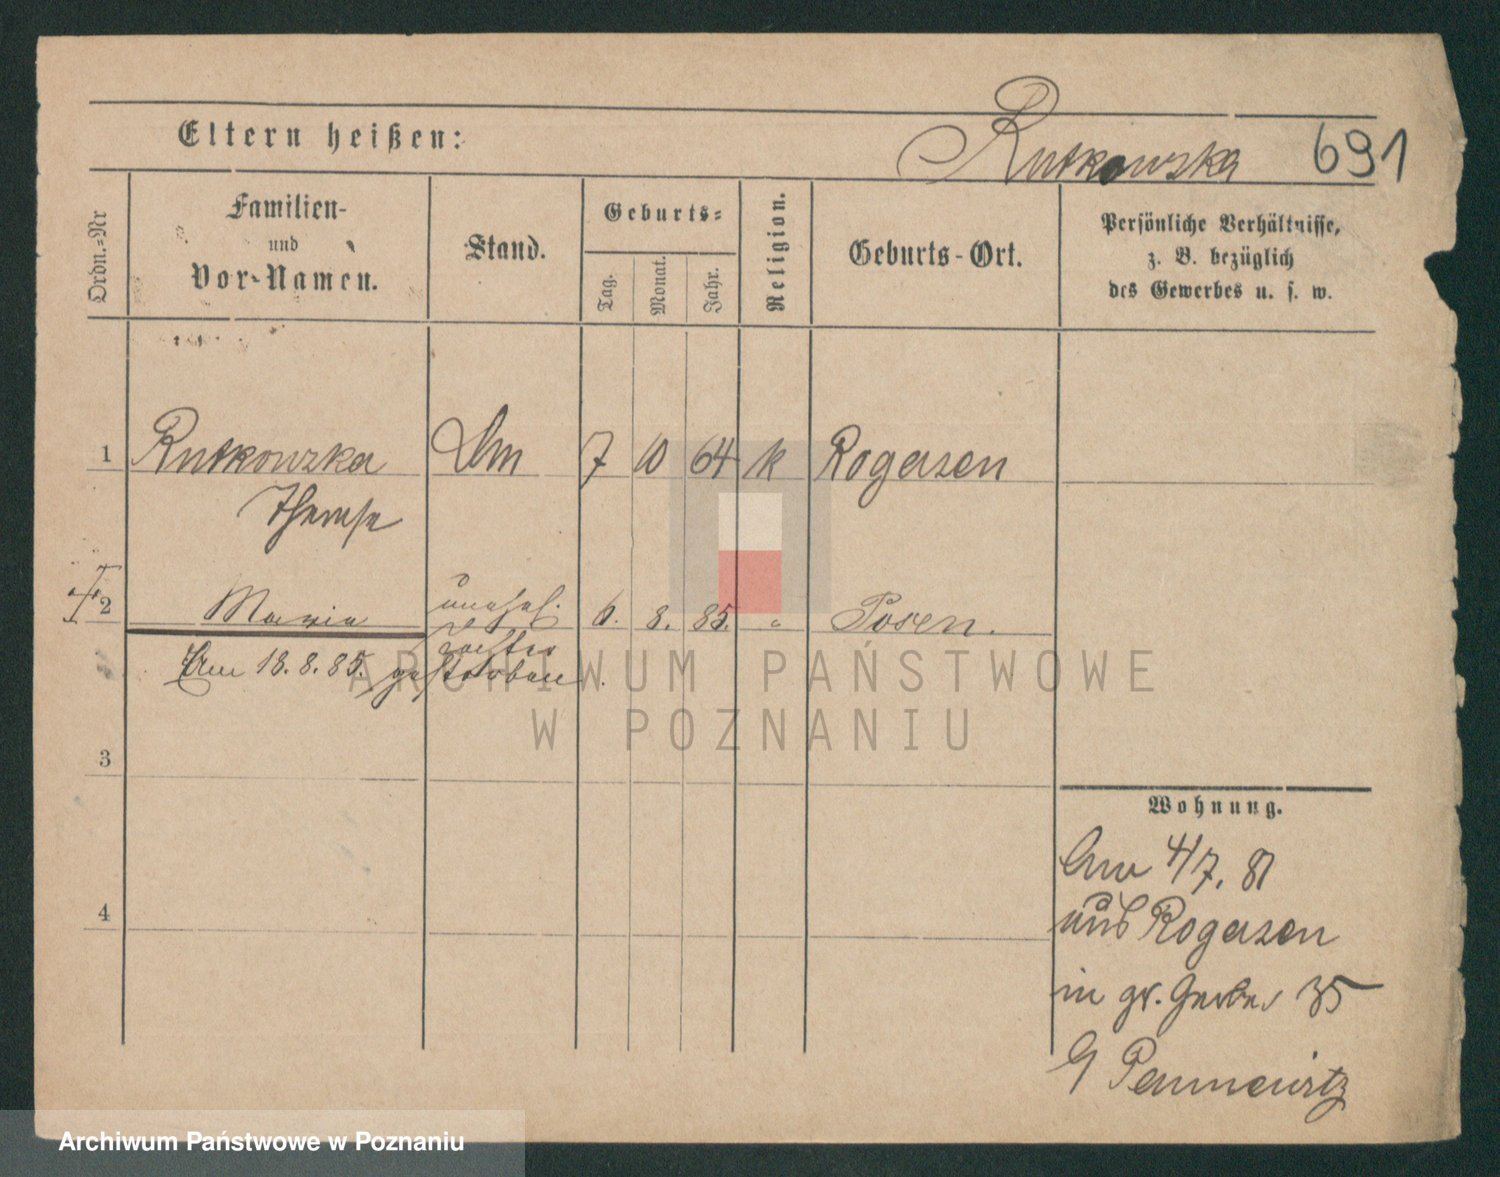 Eltern heißen:
Rutkowska 691
Ordn.-Nr
Familien-
und
Vor-Namen.
Stand.
Geburts-
Tag.
Monat.
Jahr.
Religion.
Geburts-Ort.
Persönliche Verhältnisse,
z. B. bezüglich
des Gewerbes u. s. w.
1 Rutkowska 7 10 64 k Rogasen
Therese
2 Maria unehel. 6. 8. 85. " Posen.
Tochter
Am 18.8.85. gestorben.
3
4
Wohnung.
Am 4/7. 81
aus Rogasen
in gr. Gerber 35
Pannewitz
ARCHIWUM PAŃSTWOWE
W POZNANIU
Archiwum Państwowe w Poznaniu